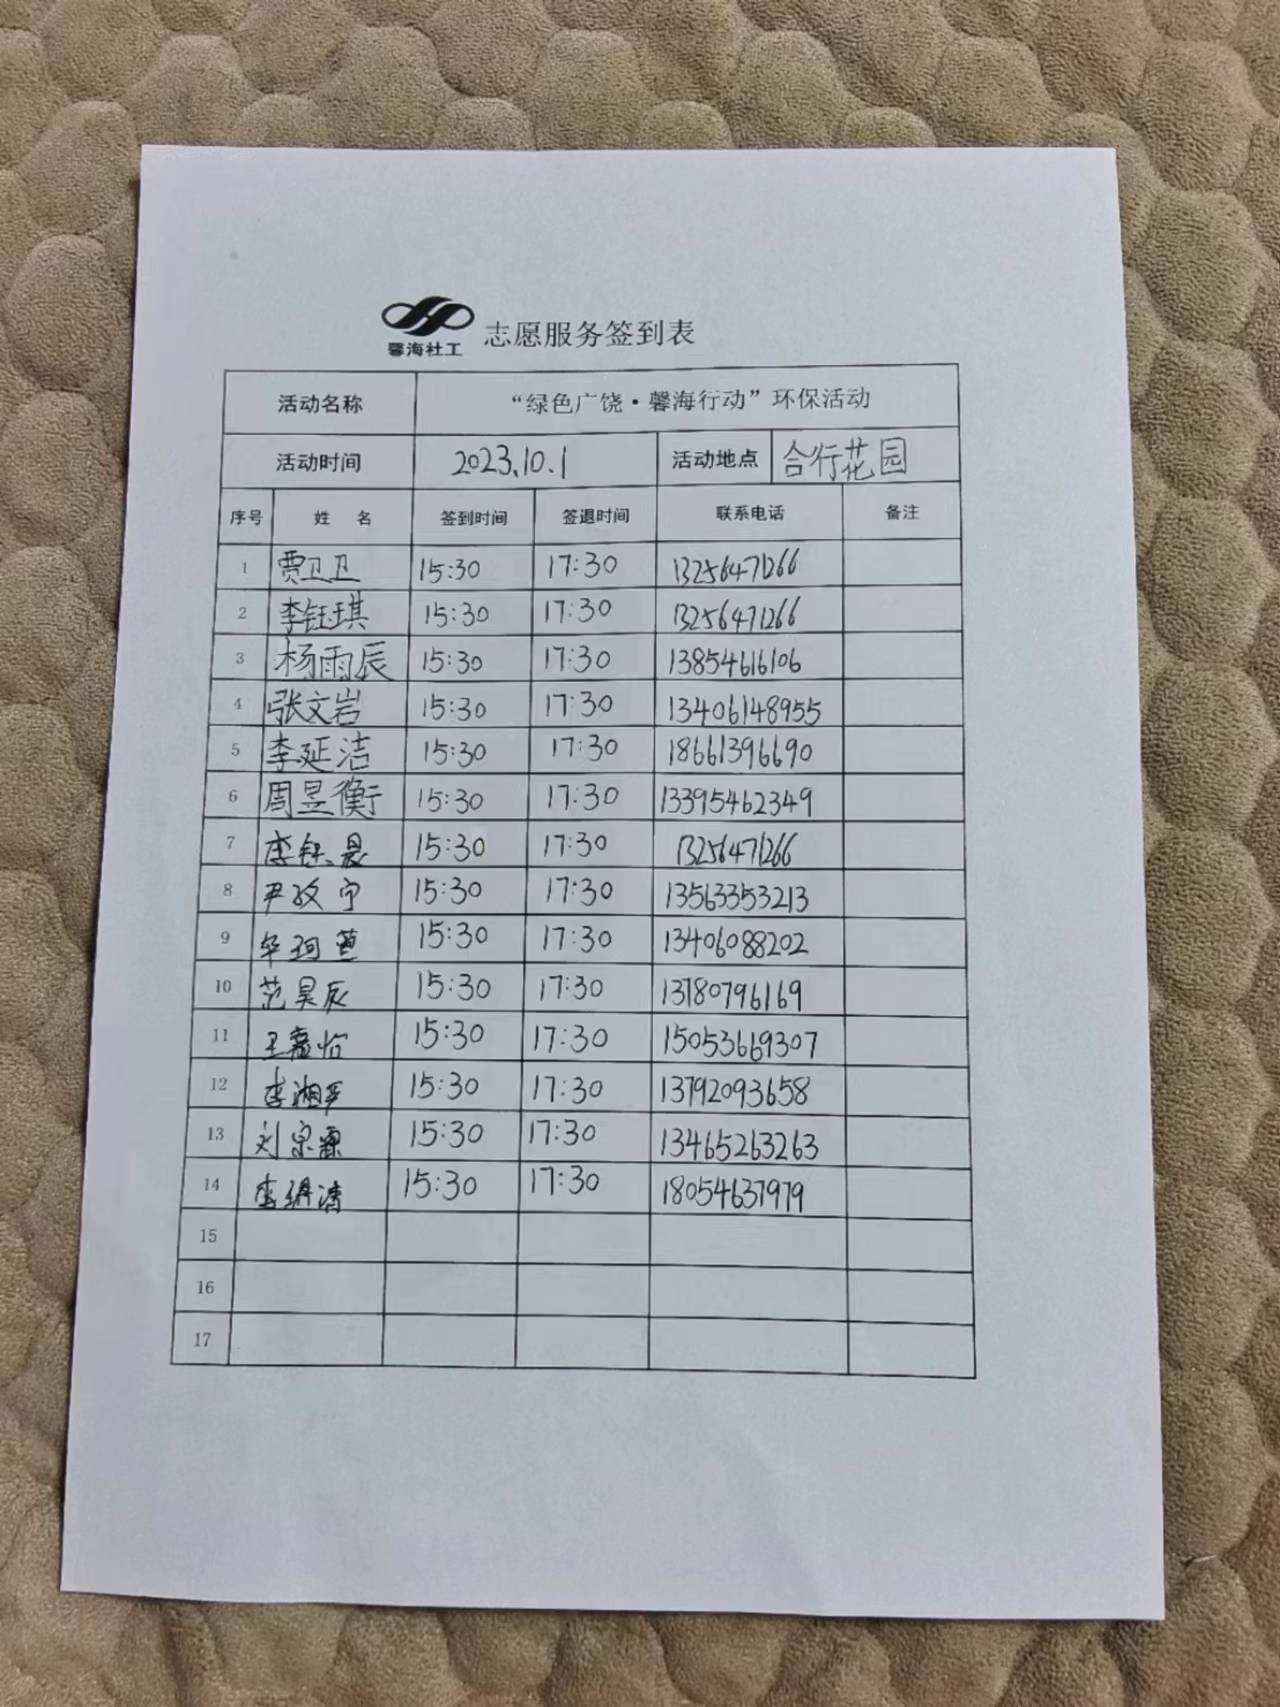 馨海社工 志愿服务签到表
活动名称 “绿色广饶·馨海行动”环保活动
活动时间 2023.10.1 活动地点 合行花园
序号 姓 名 签到时间 签退时间 联系电话 备注
1 贾卫卫 15:30 17:30 13256471266
2 李钰琪 15:30 17:30 13256471266
3 杨雨辰 15:30 17:30 13854616106
4 张文岩 15:30 17:30 13406148955
5 李延洁 15:30 17:30 18661396690
6 周昱衡 15:30 17:30 13395462349
7 李钰晨 15:30 17:30 13256471266
8 尹 宁 15:30 17:30 13563353213
9 15:30 17:30 13406088202
10 范昊辰 15:30 17:30 13780796169
11 王嘉怡 15:30 17:30 15053669307
12 李湘 15:30 17:30 13792093658
13 刘宗霖 15:30 17:30 13465263263
14 李 清 15:30 17:30 18054637979
15
16
17